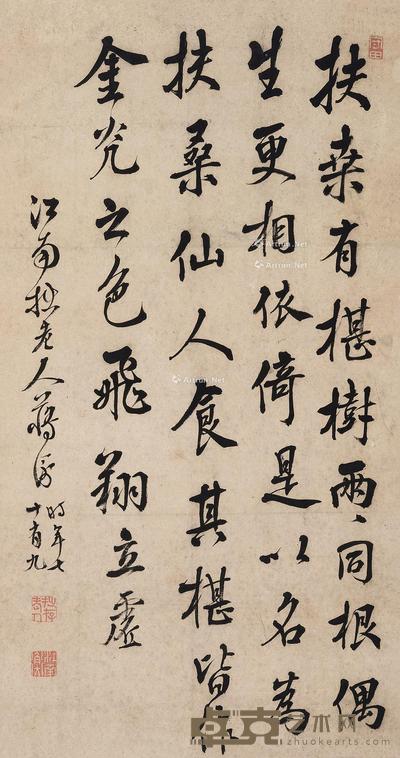 扶桒有椹樹兩兩同根偶
生更相依倚是以名為
扶桑仙人食其椹皆作
金光之色飛翔立虛
江南拙老人蔣衡
時年七
十有九
卓克艺术网
zhuokearts.com